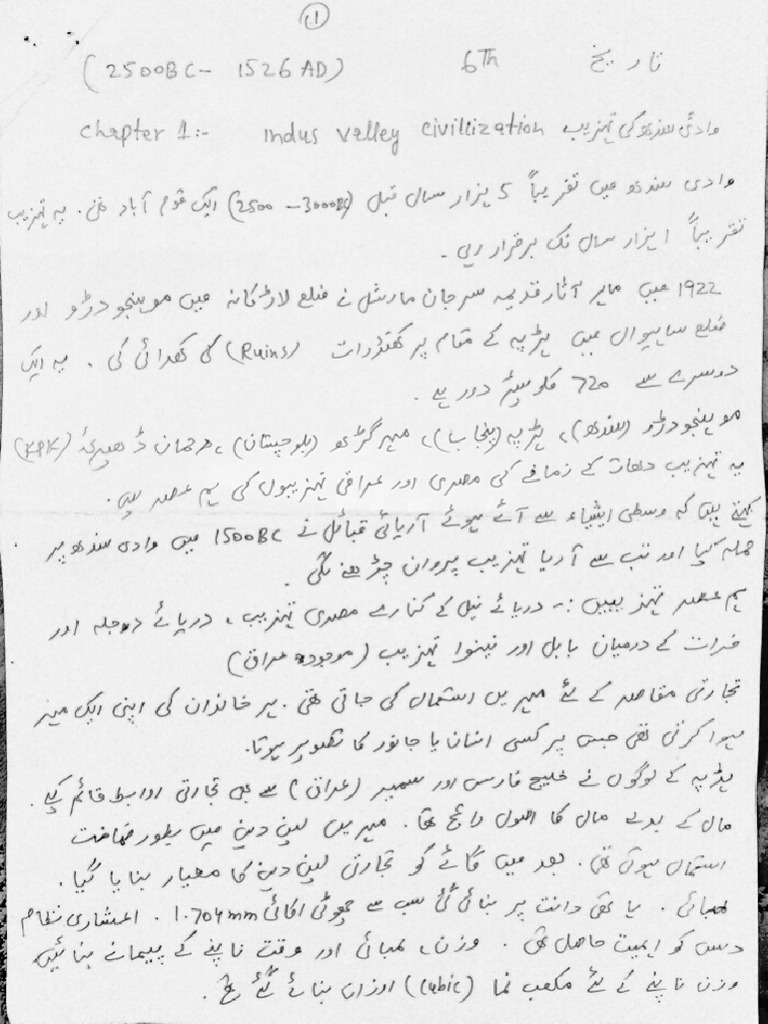 (1)
تاریخ 6Th (2500BC - 1526 AD)
Chapter 1:- Indus Valley Civilization وادئ سندھ کی تہذیب
وادی سندھ میں تقریباً 5 ہزار سال قبل (2500 - 3000BC) ایک قوم آباد تھی۔ یہ تہذیب
تقریباً 1 ہزار سال تک برقرار رہی۔
1922 میں ماہر آثار قدیمہ سر جان مارشل نے ضلع لاڑکانہ میں موہنجودڑو اور
ضلع ساہیوال میں ہڑپہ کے مقام پر کھنڈرات (Ruins) کی کھدائی کی۔ یہ ایک
دوسرے سے 720 کلو میٹر دور ہے۔
موہنجودڑو (سندھ)، ہڑپہ (پنجاب)، مہرگڑھ (بلوچستان)، رحمان ڈھیرئ (KPK)
یہ تہذیب دھات کے زمانے کی مصری اور عراقی تہذیبوں کی ہم عصر ہے۔
کہتے ہیں کہ وسطی ایشیاء سے آئے ہوئے آریائی قبائل نے 1500BC میں وادی سندھ پر
حملہ کیا اور تب سے آریا تہذیب پروان چڑھنے لگی۔
ہم عصر تہذیبیں :- دریائے نیل کے کنارے مصری تہذیب، دریائے دجلہ اور
فرات کے درمیان بابل اور نینوا تہذیب (موجودہ عراق)
تجارتی مقاصد کے لئے مہریں استعمال کی جاتی تھی۔ ہر خاندان کی اپنی ایک مہر
ہوا کرتی تھی جس پر کسی انسان یا جانور کا تصویر ہوتا۔
ہڑپہ کے لوگوں نے خلیج فارس اور سمیر (عراق) سے بھی تجارتی روابط قائم کیے۔
مال کے بدلے مال کا اصول رائج تھا۔ مہریں لین دین میں بطور ضمانت
استعمال ہوتی تھی۔ بعد میں گائے کو تجارتی لین دین کا معیار بنایا گیا۔
لمبائی۔ ہاتھی دانت پر بنائی گئی سب سے چھوٹی اکائی 1.704mm۔ اعشاری نظام
دس کو اہمیت حاصل تھی۔ وزن، لمبائی اور وقت ناپنے کے پیمانے بنائیں
وزن ناپنے کے لئے مکعب نما (Cubic) اوزان بنائے گئے تھے۔